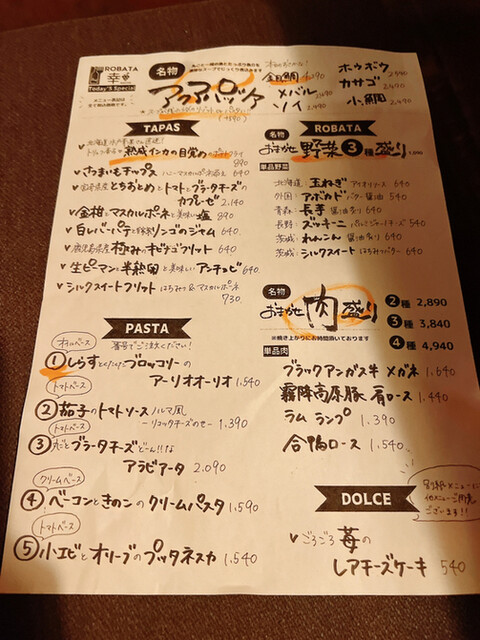 ROBATA
幸
Today'S Special
メニュー表記は
全て税込価格です。
名物
アクアパッツァ
本日のおさかな!
金目鯛
メバル
ソイ
ホウボウ 2.590
カサゴ 2.590
小鯛 2.490
(+590)
TAPAS
熟成インカの目覚めの
890
✓さつまいもチップス ハニーマスカルポーネ添え 640
✓とちおとめとトマトとブラータチーズの
カプレーゼ 2.140
✓金柑とマスカルポーネと美味しい塩 890
✓白レバーパテと リンゴのジャム 640
✓鹿児島産 極みのキビナゴフリット 640
✓生ピーマンと半熟卵と美味しいアンチョビ 690
✓シルクスイートフリット はちみつ&マスカルポーネ
730
ROBATA
名物
おまかせ 野菜 3種盛り 1.890
単品野菜
北海道: 玉ねぎ アイオリソース 640
外国: アボカド バター醤油 540
青森: 長芋 醤油香り 640
長野: ズッキーニ パルミジャーノチーズ 540
茨城: れんこん 醤油香り 640
茨城: シルクスイート はちみつバター 640
名物
おまかせ 肉盛り
2種 2,890
3種 3,840
4種 4,940
*焼き上がりにお時間頂いております
単品肉
ブラックアンガス牛 メガネ 1.640
霧降高原豚 肩ロース 1.440
ラム ランプ 1.390
合鴨ロース 1.540
PASTA
番号でご注文ください!
オイルベース
①しらすとくたくたブロッコリーの
アーリオオーリオ 1.540
トマトベース
②茄子のトマトソース ノルマ風
-リコッタチーズのせ- 1.390
トマトベース
③丸ごとブラータチーズどーん!!な
アラビアータ 2.090
クリームベース
④ベーコンときのこのクリームパスタ 1.590
トマトベース
⑤小エビとオリーブのプッタネスカ 1.540
DOLCE
別紙メニューに
他メニューご用意
ございます!!
✓ごろごろ苺の
レアチーズケーキ 540